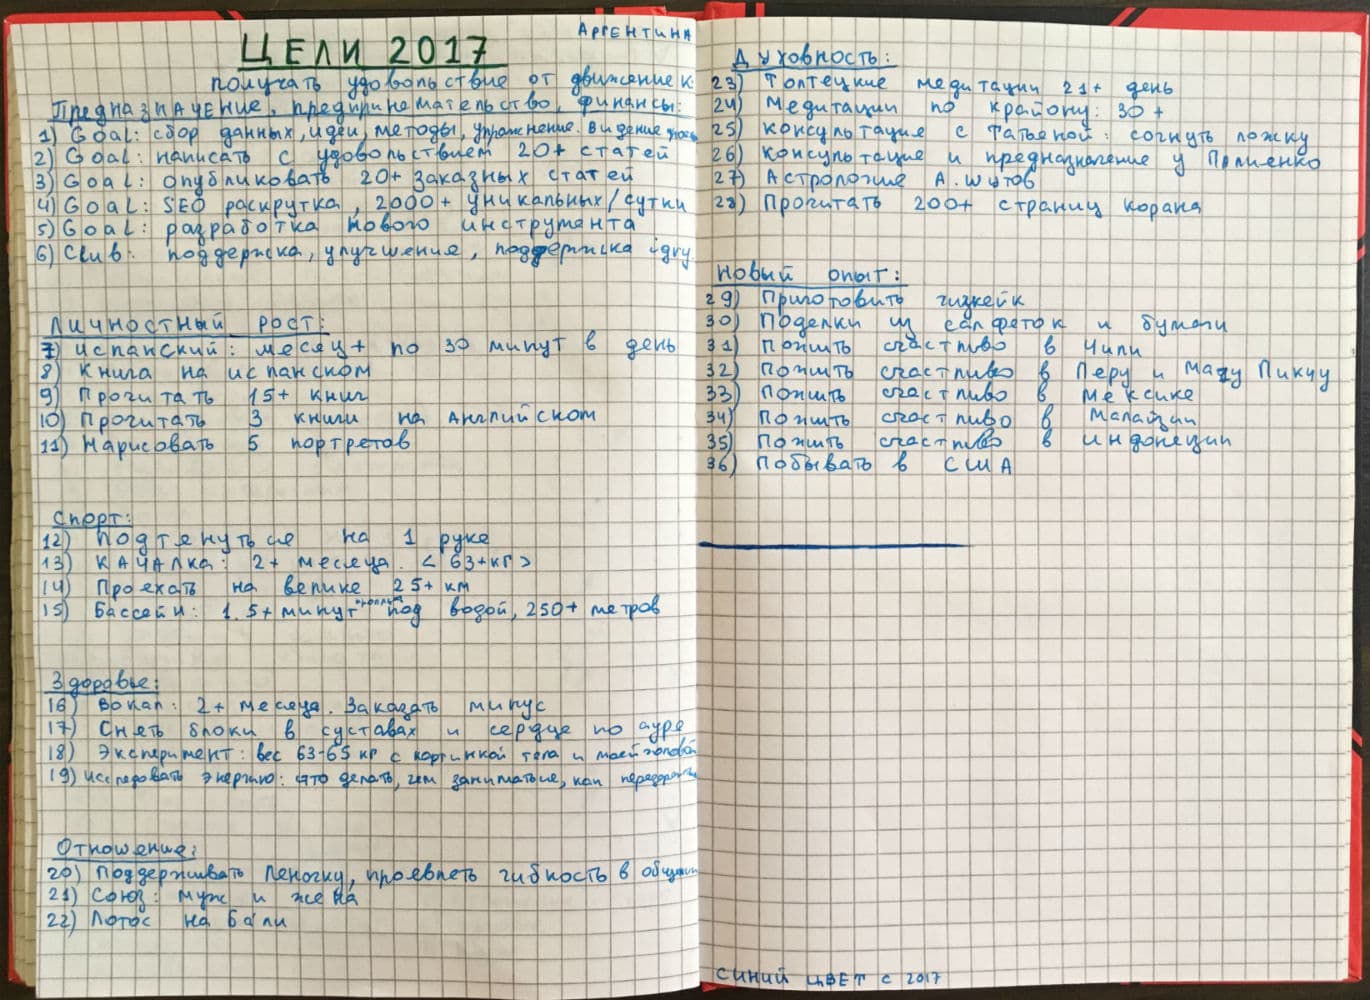 Аргентина
ЦЕЛИ 2017
получать удовольствие от движение к:
Предназначение, предпринемательство, финансы:
1) Goal: сбор данных, идеи, методы, упражнение. Видение
2) Goal: написать с удовольствием 20+ статей
3) Goal: опубликовать 20+ заказных статей
4) Goal: SEO раскрутка, 2000+ уникальных/сутки
5) Goal: разработка нового инструмента
6) Club: поддержка, улучшение, поддержка igry
Личностный рост:
7) испанский: месяц+ по 30 минут в день
8) Книга на испанском
9) Прочитать 15+ книг
10) Прочитать 3 книги на Английском
11) Нарисовать 5 портретов
Спорт:
12) Подтянуться на 1 руке
13) КАЧАЛКА: 2+ месяца. <63+кг>
14) Проехать на велике 25+ км
15) Бассейн: 1.5+ минут под водой, 250+ метров
Здоровье:
16) Вокал: 2+ месяца. Заказать минус
17) Снять блоки в суставах и сердце по ауре
18) Эксперимент: вес 63-65 кг с картинкой тела и моей головой
19) исследовать энергию: что делать, чем заниматься, как
Отношение:
20) Поддерживать Леночку, проявлять гибкость в общении
21) Союз: муж и жена
22) Лотос на Бали
Духовность:
23) Толтецкие медитации 21+ день
24) Медитации по крайону: 30+
25) консультация с Татьяной: согнуть ложку
26) консультация и предназначение у Палиенко
27) Астрология А. шутов
28) Прочитать 200+ страниц корана
Новый опыт:
29) Приготовить чизкейк
30) Поделки из салфеток и бумаги
31) Пожить счастливо в Чили
32) Пожить счастливо в Перу и Мачу Пикчу
33) Пожить счастливо в Мексике
34) Пожить счастливо в Малайзии
35) Пожить счастливо в индонезии
36) Побывать в США
СИНИЙ ЦВЕТ с 2017